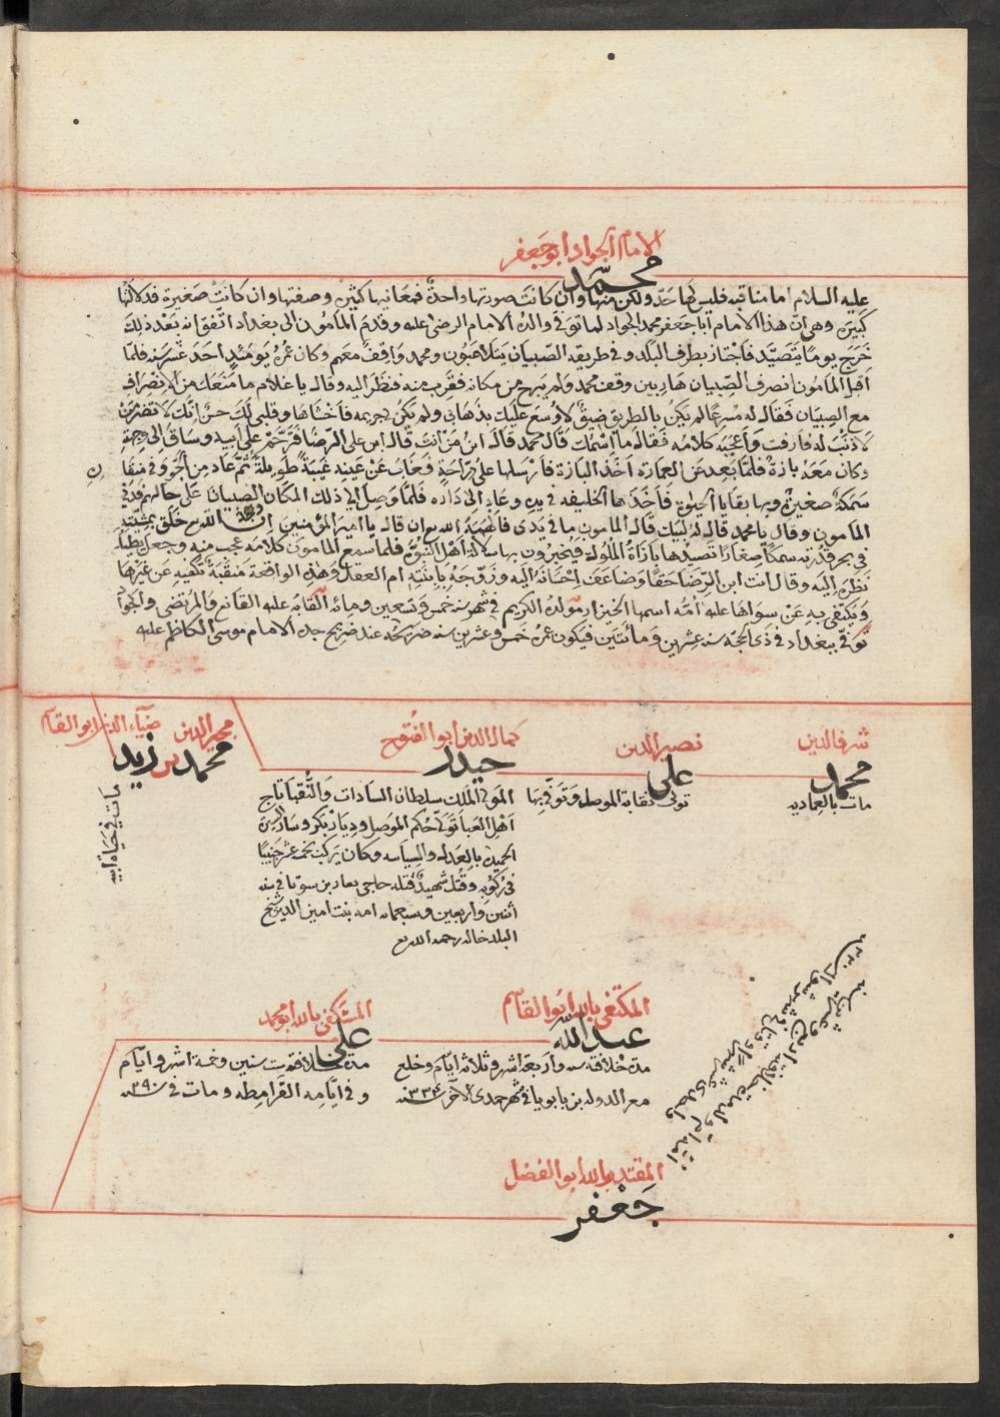 الامام الجواد ابو جعفر
محمد
عليه السلام اما مناقبه فليس لها حد ولكن منها وان كانت صورتها واحدة فمعانيها كثيرة وصفتها وان كانت صغيرة فدلالتها
كبيرة وهى ان هذا الامام ابا جعفر محمد الجواد لما توفى والده الامام الرضى عليه وقدم المامون الى بغداد اتفق انه بعد ذلك
خرج يوما يتصيد فاجتاز بطرف البلد وفى طريقه الصبيان يتلاعبون ومحمد واقف معهم وكان عمره يومئذ احد عشر سنه فلما
اقبل المامون انصرف الصبيان هاربين ووقف محمد ولم يبرح من مكانه فقرب منه فنظر اليه وقال يا غلام ما منعك من الانصراف
مع الصبيان فقال له مسرعا لم يكن بالطريق ضيق لاوسع عليك بذهابى ولم تكن لى جريمه فاخشاها وقلبى لك حسن انك لا تضر من
لا ذنب له فارفت واعجبه كلامه فقال ما اسمك قال محمد قال ابن من انت قال ابن على الرضا فترحم على ابيه وساق الى وجهته
وكان معه بازة فلما بعد عن العمارة اخذ البازة فارسلها على دراجة فغاب عن عينه غيبة طويلة ثم عاد من الجو وفى منقا
سمكة صغيرة وبها بقايا الحيوة فاخذها الخليفه فى يده وعاد الى داره فلما وصل الى ذلك المكان الصبيان على حالهم
المامون وقال يا محمد قال له لبيك قال المامون ما فى يدى فالهمه الله تع ان قال يا امير المؤمنين ان الله تع خلق بمشيته
فى بحر قدرته سمكا صغارا تصيدها بازاة الملوك فيخبرون بها سلالة اهل النبوة فلما سمع المامون كلامه عجب منه وجعل يطيل
نظره اليه وقال انت ابن الرضا حقا وضاعف احسانه اليه وزوجه بابنته ام الفضل وهذه الواقعة منقبة تكفيه عن غيرها
ويكتفى به عن سواها عليه امه اسمها الخيزران مولده الكريم فى شهر سنه خمس وتسعين ومائه القابه عليه القانع والمرتضى والجواد
توفى ببغداد فى ذى الحجة سنه عشرين ومائتين فيكون عمره خمس وعشرين سنه ضريحه عند ضريح جده الامام موسى الكاظم عليه
شرف الدين
محمد
مات بالعماديه
نصير الدين
على
تولى نقابة الموصل وتوفى بها
كمال الدين ابو الفتوح
حيدر
المولى الملك سلطان السادات والنقبا تاج
اهل العبا تولى حكم الموصل وديار بكر وسار
الحميدة بالعدل والسياسه وكان يركب خمسة عشر جنيبا
فى ركوبه وقتل شهيدا قتله حاجى بن سوتا فى سنه
اثنين واربعين وسبعمائه امه بنت امين الدين شيخ
البلد خاله رحمه الله تع
مجير الدين
محمد بن زيد
ضياء الدين ابو القاسم
مات فى حياة ابيه
المكتفى بالله ابو القاسم
عبد الله
مدة خلافته سنه واربعة اشهر وثلاثة ايام وخلع
معز الدوله بن بابويا فى شهر جمدى الآخر سنه ٣٣٤
المستكفى بالله ابو محمد
على
مدة خلافته ست سنين وخمسة اشهر وايام
وفى ايامه القرامطه ومات فى سنه
المقتدر بالله ابو الفضل
جعفر